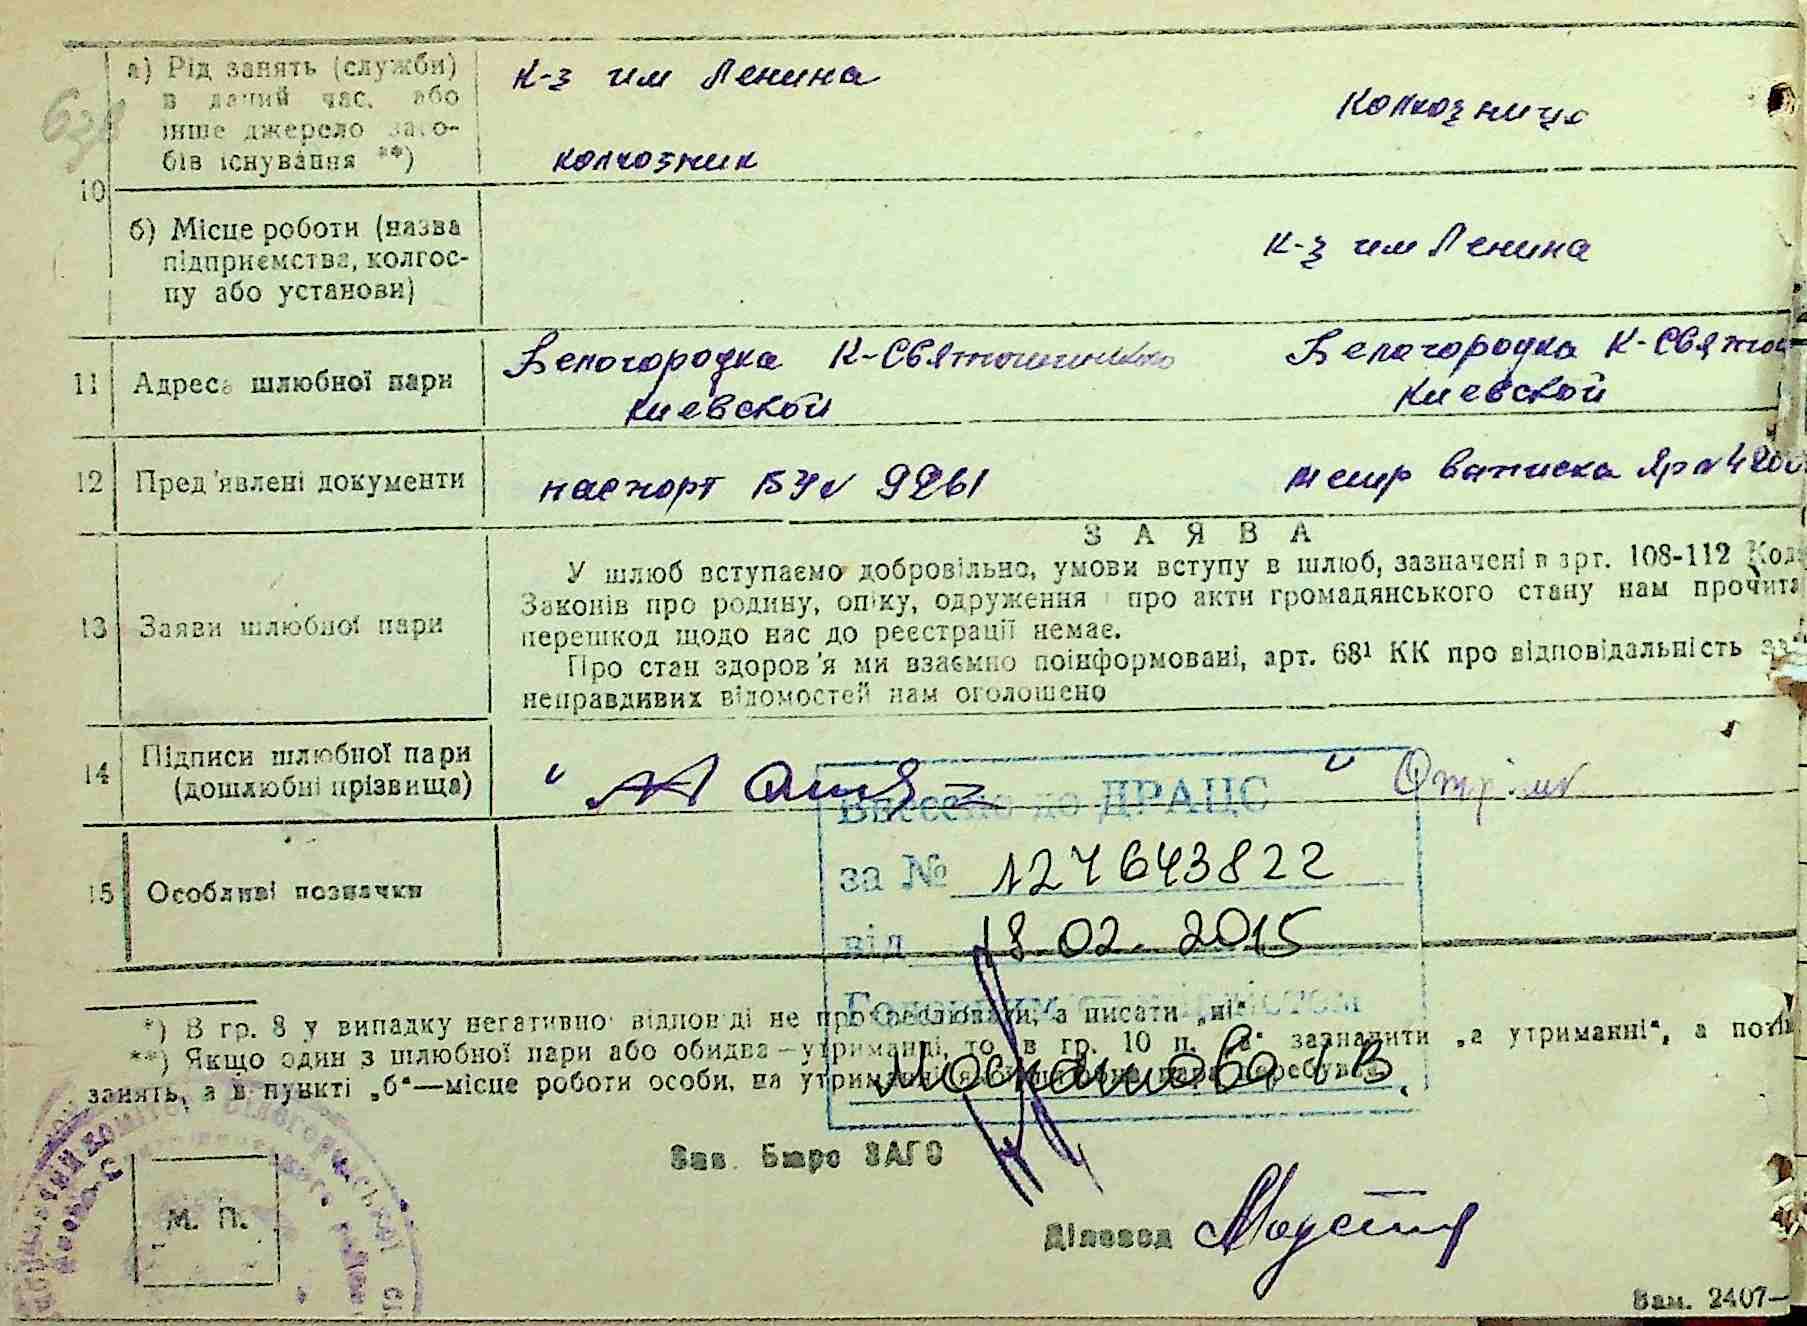 а) Рід занять (служби)
в даний час, або
інше джерело засо-
бів існування **)
к-з им Ленина
колхозник
колхозница
10
б) Місце роботи (назва
підприємства, колгос-
пу або установи)
к-з им Ленина
11 Адреса шлюбної пари
Белогородка К-Святошинского
Киевской
Белогородка К-Святош
Киевской
12 Пред'явлені документи
паспорт 9261
метр выписка
З А Я В А
13 Заяви шлюбної пари
У шлюб вступаємо добровільно, умови вступу в шлюб, зазначені в арт. 108-112 Код
Законів про родину, опіку, одруження і про акти громадянського стану нам прочита
перешкод щодо нас до реєстрації немає.
Про стан здоров'я ми взаємно поінформовані, арт. 68¹ КК про відповідальність за
неправдивих відомостей нам оголошено
14 Підписи шлюбної пари
(дошлюбні прізвища)
Внесено до ДРАЦС
за № 127643822
від 18.02.2015
15 Особливі позначки
Головним спеціалістом
*) В гр. 8 у випадку негативної відповіді не прокреслювати, а писати „ні“
**) Якщо один з шлюбної пари або обидва—утриманці, то в гр. 10 п. „а“ зазначити „а утриманні“, а потім
занять, а в пункті „б“—місце роботи особи, на утриманні якої шлюбна пара перебуває
Зав. Бюро ЗАГС
М. П.
Діловод
Зам. 2407—